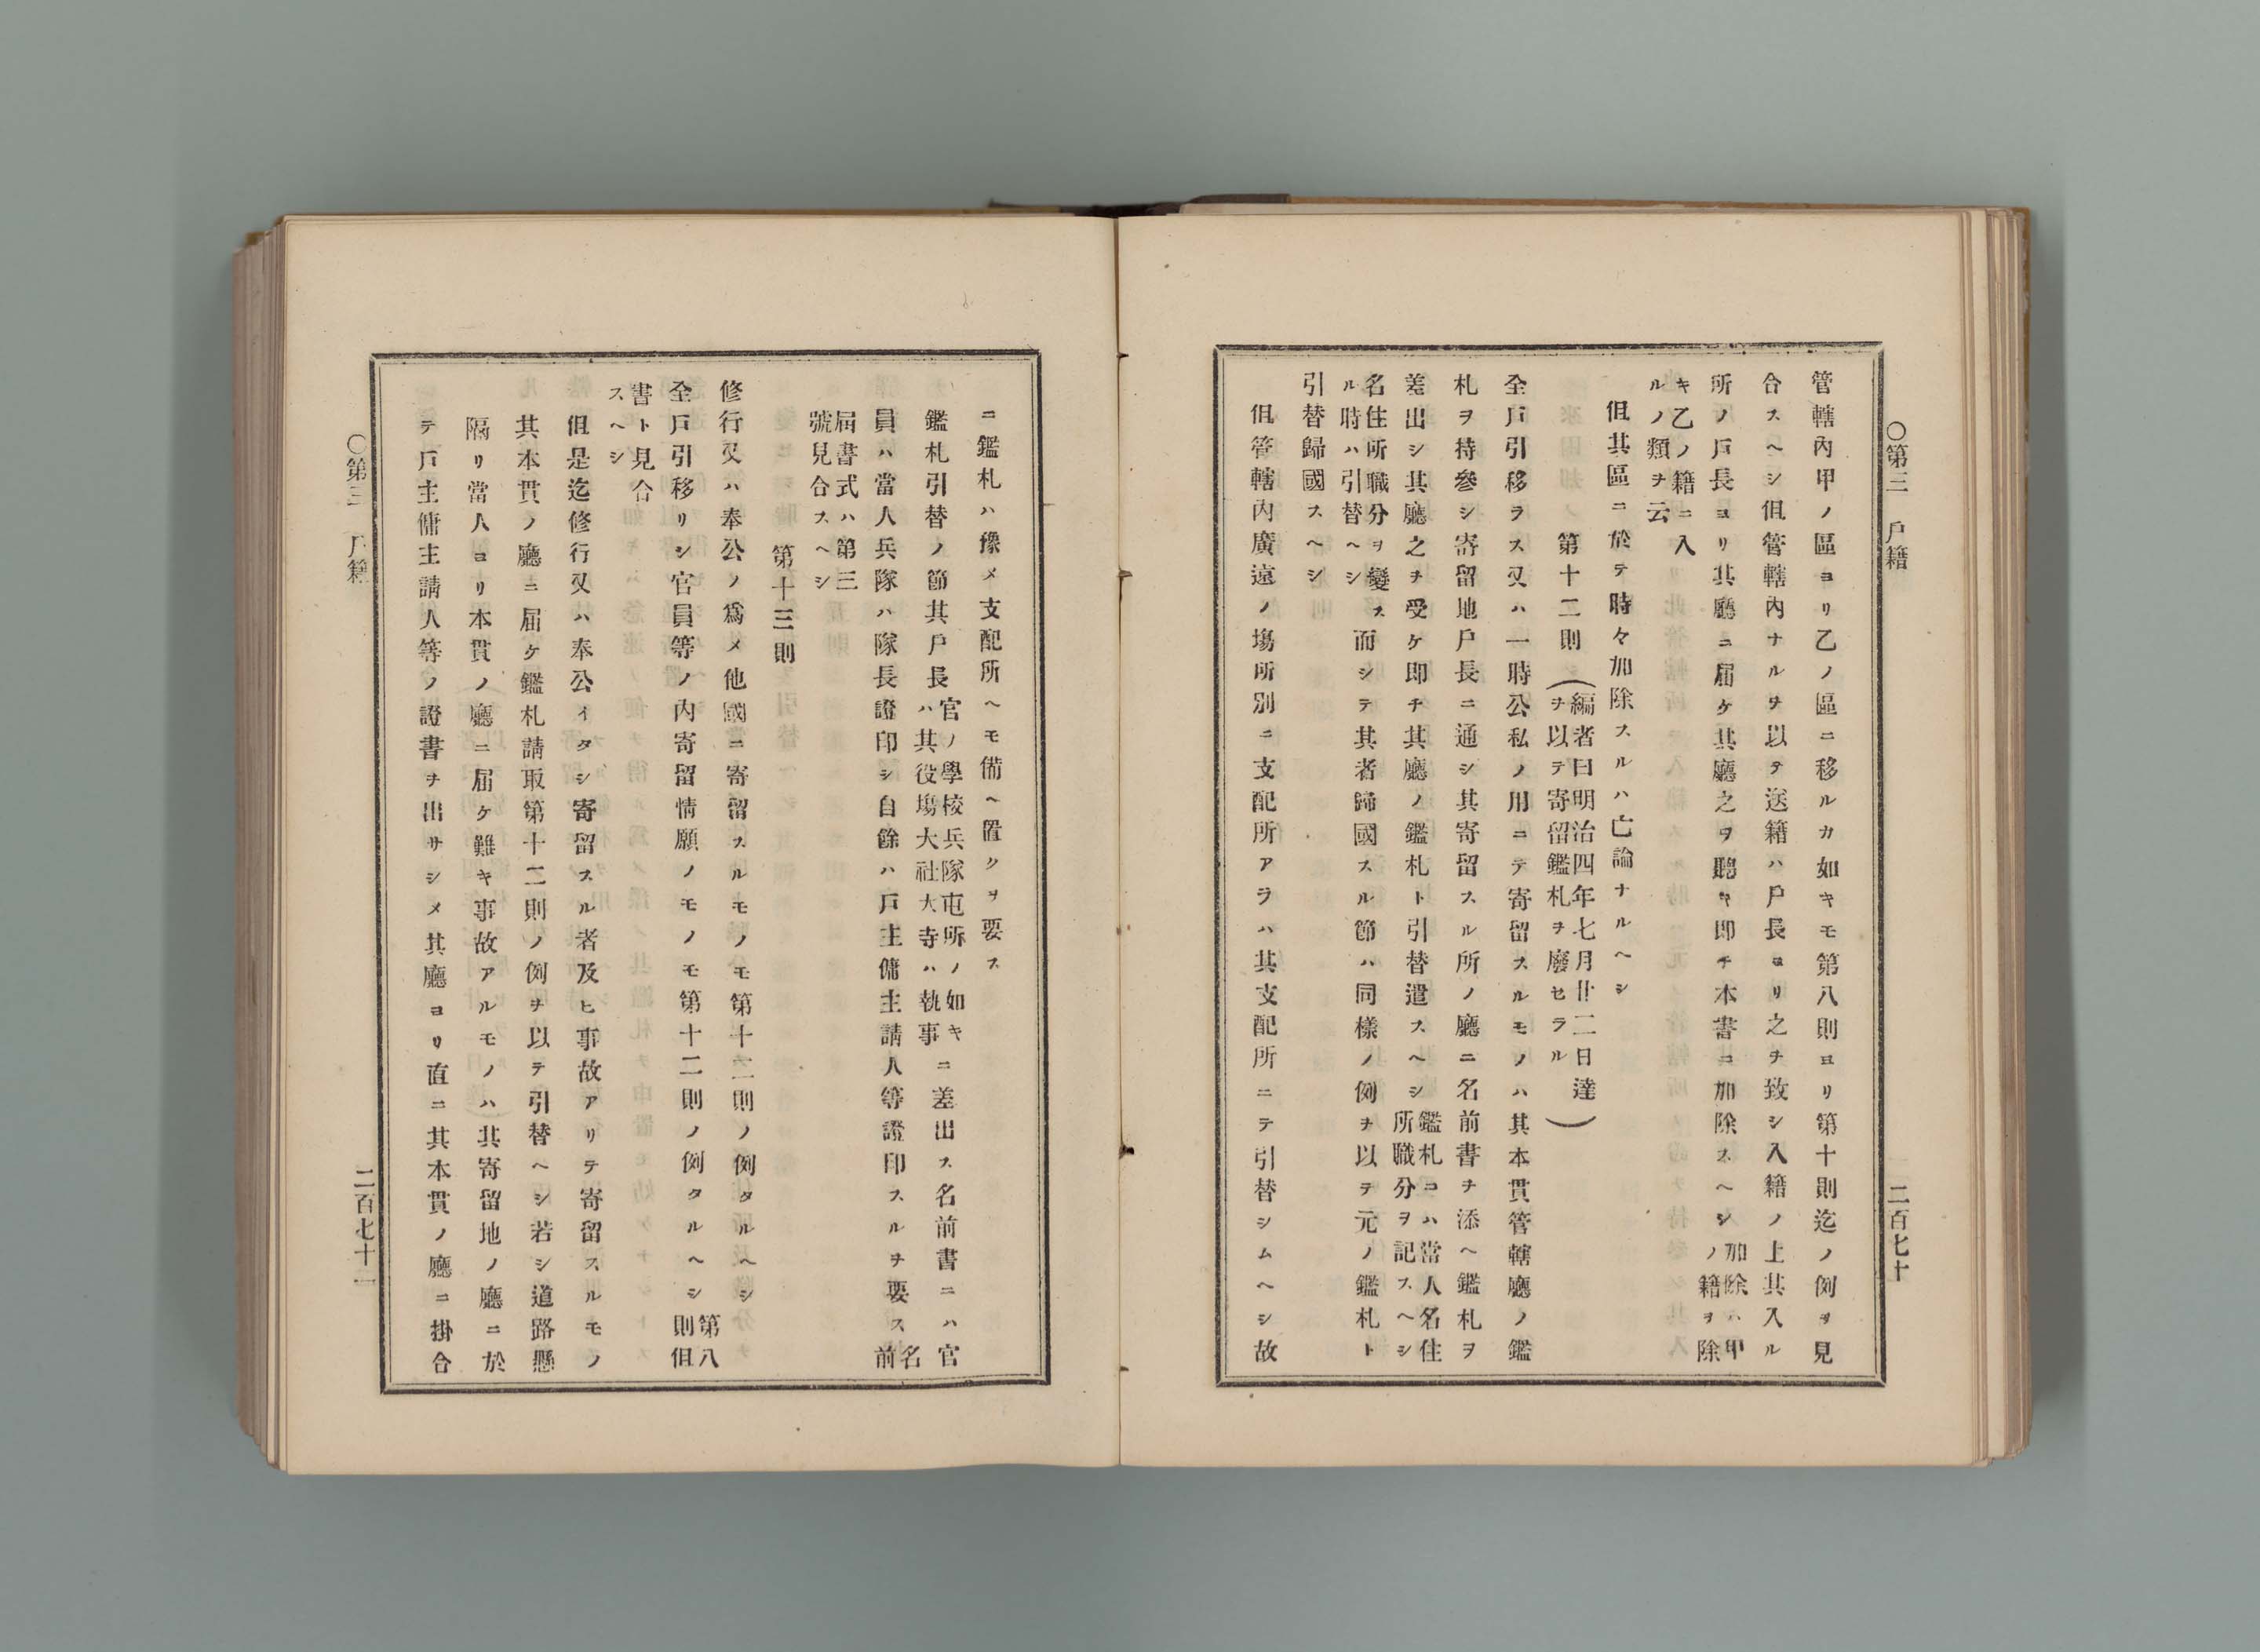 〇第三　戸籍　二百七十
管轄內甲ノ區ヨリ乙ノ區ニ移ルカ如キモ第八則ヨリ第十則迄ノ例ヲ見
合スヘシ但管轄內ナルヲ以テ送籍ハ戸長ヨリ之ヲ致シ入籍ノ上其入ル
所ノ戸長ヨリ其廳ニ届ケ其廳之ヲ聽キ卽チ本書ニ加除スヘシ加除ハ甲ノ籍ヲ除
キ乙ノ籍ニ入ルノ類ヲ云
但其區ニ於テ時々加除スルハ亡論ナルヘシ
第十二則（編者曰明治四年七月廿二日達ヲ以テ寄留鑑札ヲ廢セラル）
全戸引移ラス又ハ一時公私ノ用ニテ寄留スルモノハ其本貫管轄廳ノ鑑
札ヲ持參シ寄留地戸長ニ通シ其寄留スル所ノ廳ニ名前書ヲ添ヘ鑑札ヲ
差出シ其廳之ヲ受ケ卽チ其廳ノ鑑札ト引替遣スヘシ鑑札ニハ當人名住所職分ヲ記スヘシ
名住所職分ヲ變スル時ハ引替ヘシ而シテ其者歸國スル節ハ同樣ノ例ヲ以テ元ノ鑑札ト
引替歸國スヘシ
但管轄內廣遠ノ塲所別ニ支配所アラハ其支配所ニテ引替シムヘシ故
ニ鑑札ハ豫メ支配所ヘモ備ヘ置クヲ要ス
鑑札引替ノ節其戸長官ノ學校兵隊屯所ノ如キハ其役塲大社大寺ハ執事ニ差出ス名前書ニハ官
員ハ當人兵隊ハ隊長證印シ自餘ハ戸主傭主請人等證印スルヲ要ス名前
届書式ハ第三號見合スヘシ
第十三則
修行又ハ奉公ノ爲メ他國ニ寄留スルモノモ第十二則ノ例タルヘシ
全戸引移リシ官員等ノ內寄留情願ノモノモ第十二則ノ例タルヘシ第八則但
書ト見合スヘシ
但是迄修行又ハ奉公イタシ寄留スル者及ヒ事故アリテ寄留スルモノ
其本貫ノ廳ニ届ケ鑑札請取第十二則ノ例ヲ以テ引替ヘシ若シ道路懸
隔リ當人ヨリ本貫ノ廳ニ届ケ難キ事故アルモノハ其寄留地ノ廳ニ於
テ戸主傭主請人等ノ證書ヲ出サシメ其廳ヨリ直ニ其本貫ノ廳ニ掛合
〇第三　戸籍　二百七十一